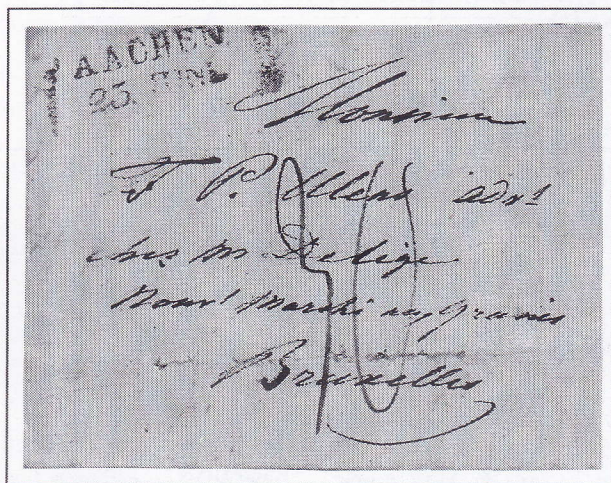 AACHEN
25 JUNI
Monsieur
F P. Ulens adrt
chez Mr Delige
Nouvt Marché aux grains
Bruxelles